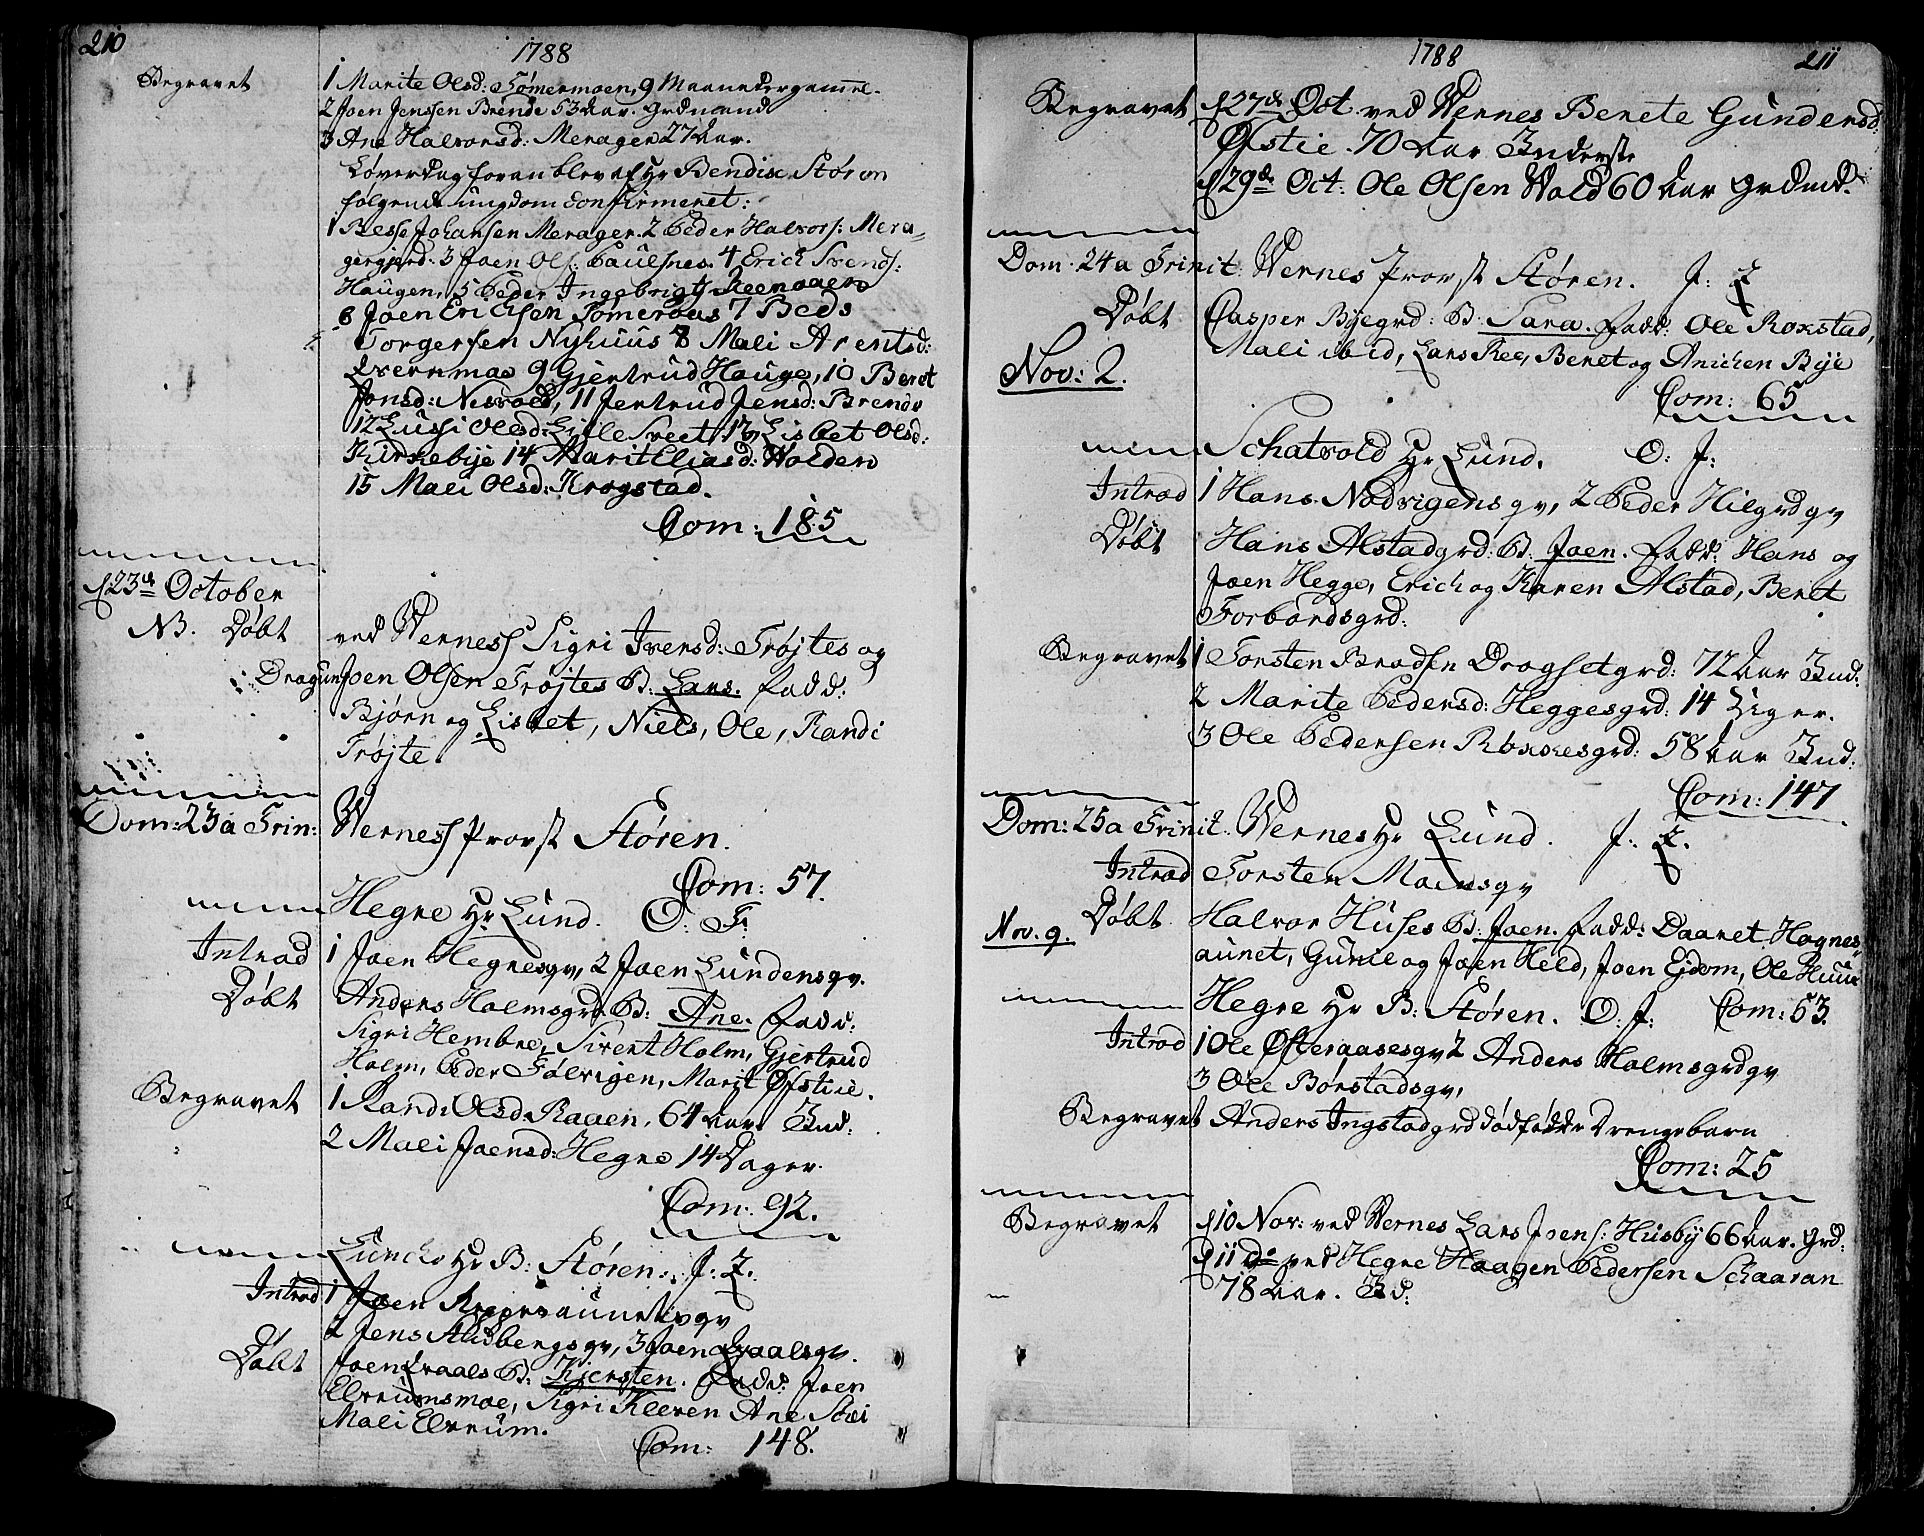 210
1788
Begravet
1 Marite Olsd: Tømermoen, 9 Maaneder gamel.
2 Joen Jenssen Brende 53 Aar. Grdmand
3 Ane Halvorsd: Merager 27 Aar.
Løverdag foran blev af Hr Bendix Støren
følgende ungdom Confirmeret:
1 Besse Johansen Merager. 2 Peder Halvors: Mera-
gergjerd. 3 Joen Ols: Paulsnes. 4 Erich Svends:
Haugen, 5 Peder Ingebrigtss
6 Joen Erichsen Tømeraas 7 Peds
Torgersen Nyhuus 8 Mali Arentsd:
Qvernmoe 9 Gjertrud Hauge, 10 Beret
Jonsd: Nesvold, 11 Jertrud Jensd: Brende
12 Lussi Olesd: Lille Sveet, 13 Lisbet Olsd:
Kirkebye 14 Marit Eliasd: Wolden
15 Mali Olsd: Krogstad.
Com: 185
d: 23de October
NB. Døbt
ved Werness Sigri Iversd: Trøjtes og
Dragun Joen Olsen Trøjtes B: Lars. Fadd:
Bjørn og Lisbet, Niels, Ole, Randi
Trøjte.
Dom: 23 a Trin:
Werness Provst Støren.
Com: 57.
Hegre Hr Lund. O. F:
Introd
1 Joen Hegresqv, 2 Joen Lundensqv.
Døbt
Anders Holmsgrd: B: Ane. Fadd:
Sigri Hembre, Sivert Holm, Gjertrud
Holm, Peder Følvigen, Marit Øfstie.
Begravet
1 Randi Olsd. Raaen, 64 Aar Ind:
2 Mali Joensd: Hegre 14 Dager.
Com: 92.
Lunche Hr B: Støren. J: Z.
Introd
1 Joen
2 Jens Audbergsqv, 3 Joen Qvaalsqv.
Døbt
Joen Qvaals B: Kjersten. Fadd: Joen
Elvrumsmoe, Sigri Kleven Ane Stoei
Mali Elvrum.
Com: 148.
1788
211
Begravet
d 27de Oct. ved Wernes Berete Gundersd:
Øfstie. 70 Aar Inderste
d 29de Oct: Ole Olsen Wold 60 Aar Grdmd.
Dom. 24 a Trinit. Wernes Provst Støren. J: Z
Døbt
Casper Byegrd: B: Sara. Fadd: Ole Roxstad,
Mali ibid, Lars Ree, Beret og Anichen Bye
Nov: 2.
Com: 65
Schatvold Hr Lund. O: J:
Introd
1 Hans Nødvigens qv, 2 Peder Hilgrdqv
Døbt
Hans Alstadgrd: B: Joen. Fadd: Hans og
Joen Hegge, Erich og Karen Alstad, Beret
Forbordsgrd:
Begravet
1 Torsten Bradsen Dragsetgrd: 72 Aar Ind:
2 Marite Pedersd: Heggesgrd: 14 Uger.
3 Ole Pedersen grd: 58 Aar Ind:
Com: 147
Dom: 25 a Trinit. Wernes Hr Lund. J: Z.
Introd
Torsten Mælesqv
Nov. 9.
Døbt
Halvor Huses B: Joen. Fadd: Daaret Hognes-
aunet, Gunil og Joen Held, Joen Ejdom, Ole Huus
Hegre Hr B: Støren. O. J: Com: 53.
Introd
1 Ole Øfteraasesqv 2 Anders Holmsgrdqv
3 Ole Børstadsqv,
Begravet
Anders Ingstadgrd dødfødde Drengebarn
Com: 25
Begravet
d 10 Nov: ved Wernes Lars Joens: Husby 66 Aar. Grd:
d 11 do ved Hegre Haagen Pedersen Schaaran
78 Aar. Ind: